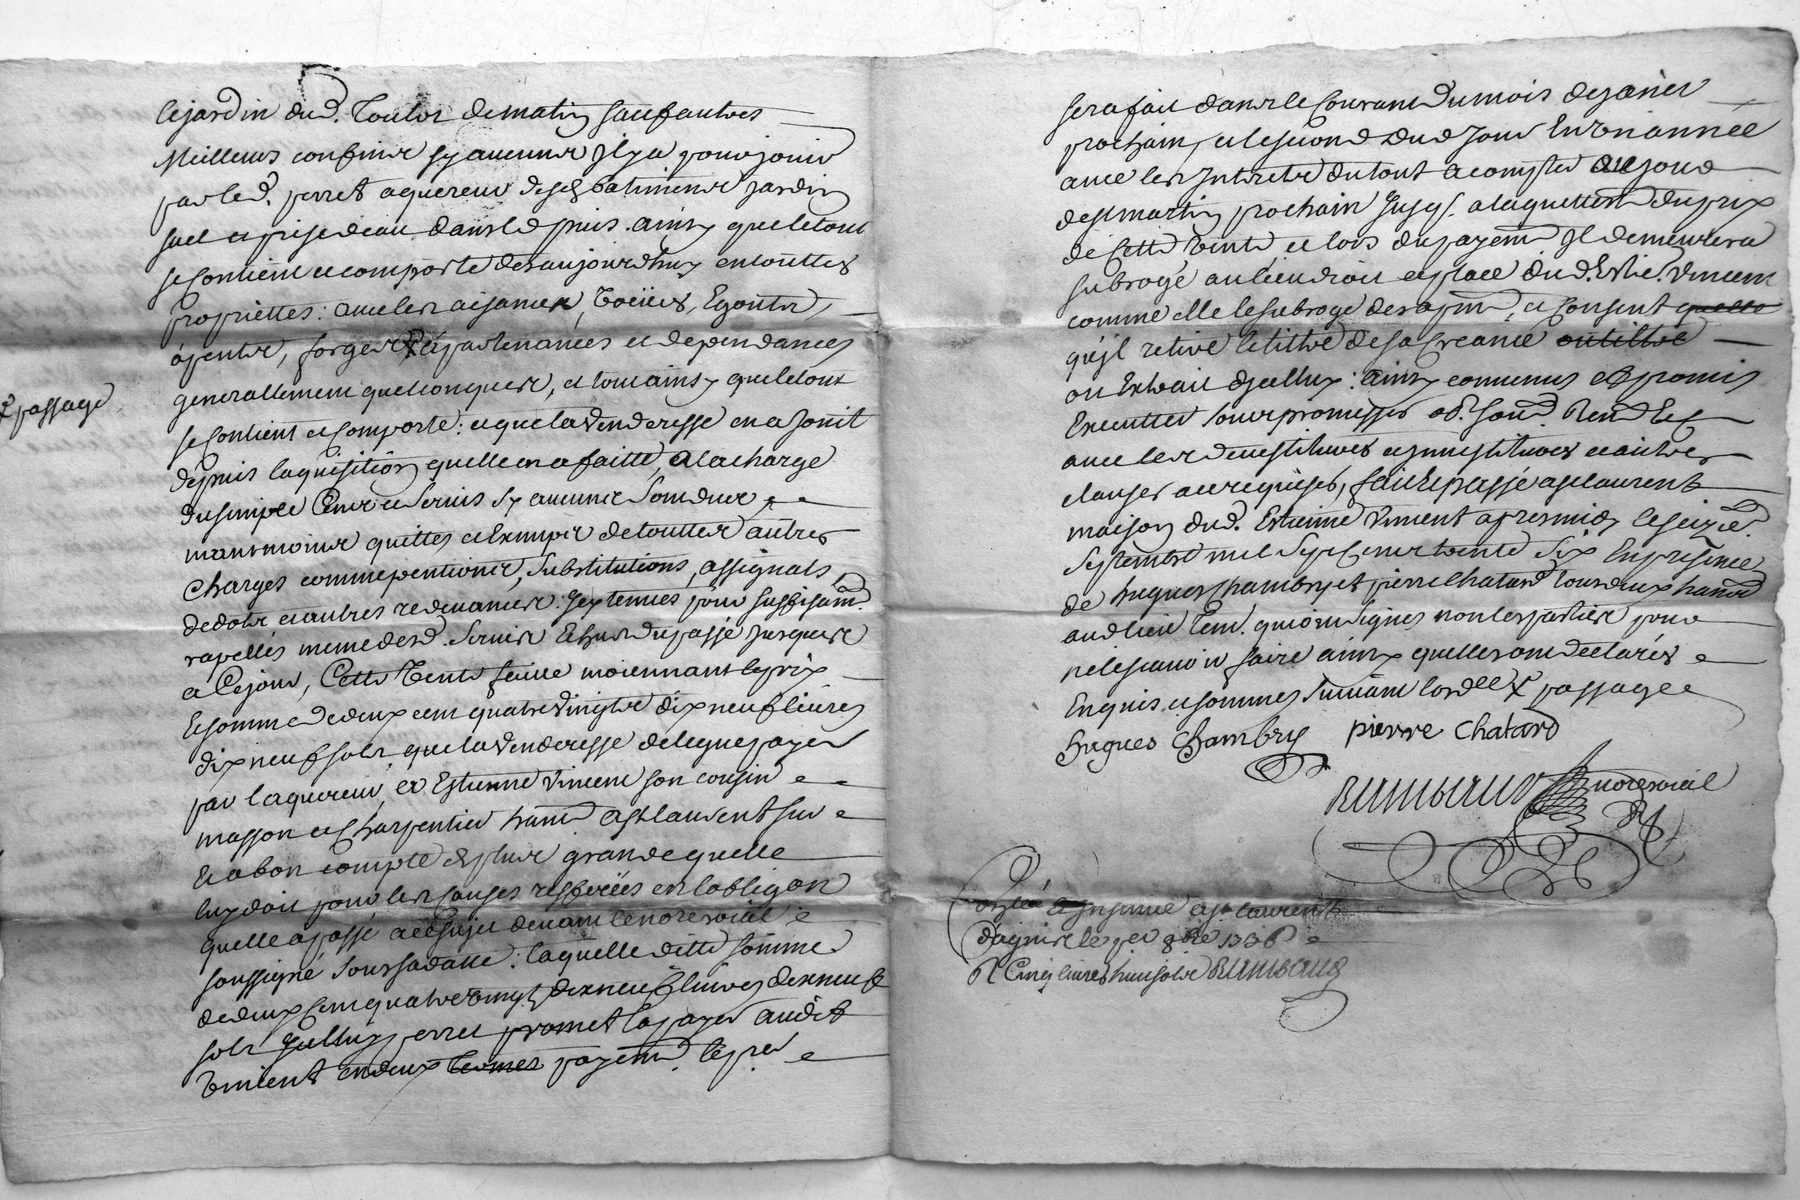 le jardin dud. Toulor de matin sauf autres
Meilleurs confins sy aucuns Il y a pour jouir
par led. perret aquereur desd. batiments jardin
suel et prise d'eau dans le puis. ainsy que le tout
se Contient et comporte des aujourdhuy en touttes
propriettés: avec les aisances, Voëües, Egoutts,
apentis, forges & apartenances et dependances
generallement quelconques, et tout ainsy que le tout
se Contient et Comporte: et que la Venderesse en a Jouit
depuis laquisition quelle en a faitte, a la charge
du simple Cens et Servis sy aucuns sont dus
neanmoins quittes et Exempts de touttes autres
charges comme pentions, Substitutions, assignats
de dots et autres redevances: Icy tenues pour suffisamt.
rapellés meme desd. Servis Echus du passé Jusques
a Ce jour, Cette Vente faitte moiennant le prix
Et somme de deux cent quatre Vingts dix neuf livres
dix neuf sols, que la Venderesse delegue payer
par l'aquereur, a Estienne Vincent son cousin
masson et Charpentier hant. a St laurent sur
Et a bon compte de plus grande quelle
luy doit pour les causes refferées en lobligaon
quelle a passé a ce sujet devant le nore roial
soussigné sous sa datte: laquelle ditte somme
de deux Cent quatre Vingt dix neuf livres dix neuf
sols Icelluy perret promet la payer audit
Vincent en deux termes payemt. le per
& passage
sera fait dans le Courant du mois de janier
prochain, et le second dud jour En Un année
avec les Interets du tout a compter du jour
de St martin prochain Jusqs. a laquittemt du prix
de Cette Vente et lors du payemt Il demeurera
subrogé au lieu droit et place dud. Estie. Vincent
comme elle le subroge des apnt, et Consent quelle
qu'jl retire le titre de sa Creance ou tiltre
ou Extrait dycelluy: ainsy convenus et promis
Executter sous promesses obt. Soumt. Rent. Et
avec les devestitures et investitures et autres
clauses a ce requises, fait Et passé a St laurent
maison dud. Estienne Vincent apres midy le seizie.
Septembre mil Sept Cent trente Six En presence
de hugues Chambry et pierre Chatard tous deux hants
aud lieu tem. qui ont signés non les parties pour
ne le scavoir faire ainsy quelles ont declarés
Enquis et sommés suivant lord.ce & passage
hugues Chambry pierre Chatard
Rimbaud nore roial
Controllé & Insinué a St laurent
dagnis le per 8bre 1736
R Cinq livres huit sols Rimbaud